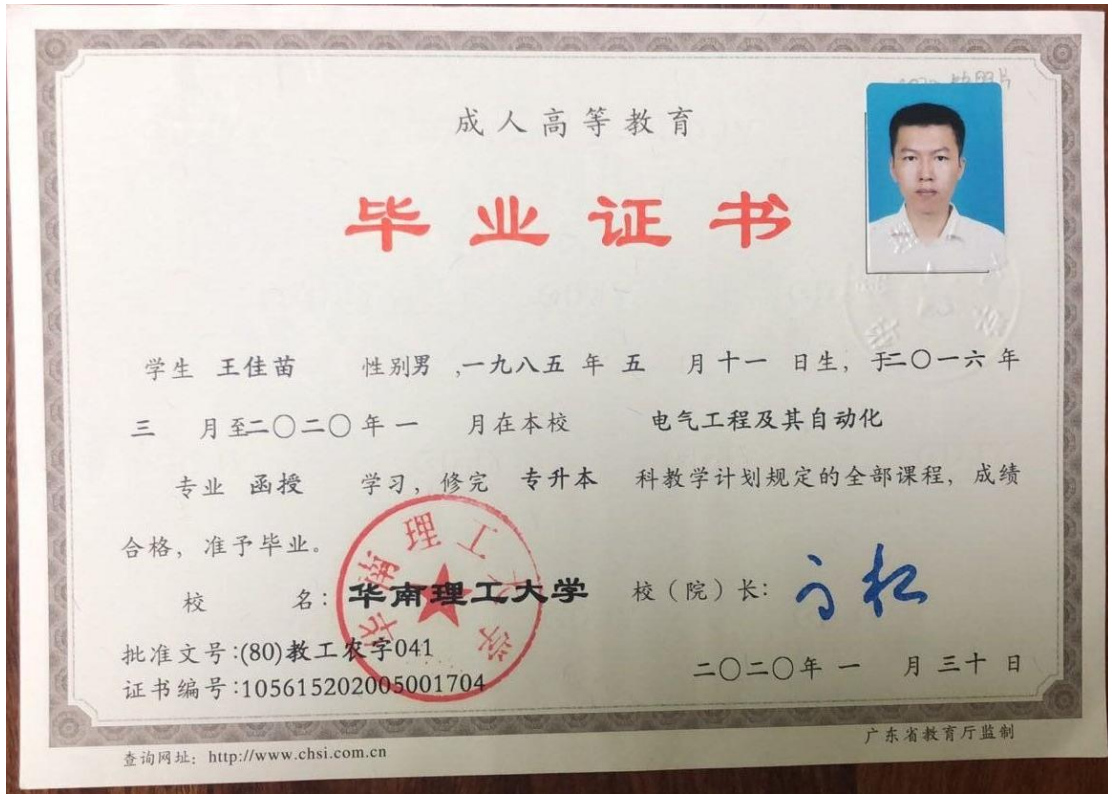 成人高等教育
毕业证书
学生 王佳苗 性别男 ,一九八五 年 五 月十一 日生, 于二〇一六 年
三 月至二〇二〇年 一 月在本校 电气工程及其自动化
专业 函授 学习, 修完 专升本 科教学计划规定的全部课程, 成绩
合格, 准予毕业。
校 名: 华南理工大学 校(院)长:
华南理工大学
批准文号:(80)教工农字041
二〇二〇年 一 月 三十 日
证书编号:105615202005001704
广东省教育厅监制
查询网址: http://www.chsi.com.cn